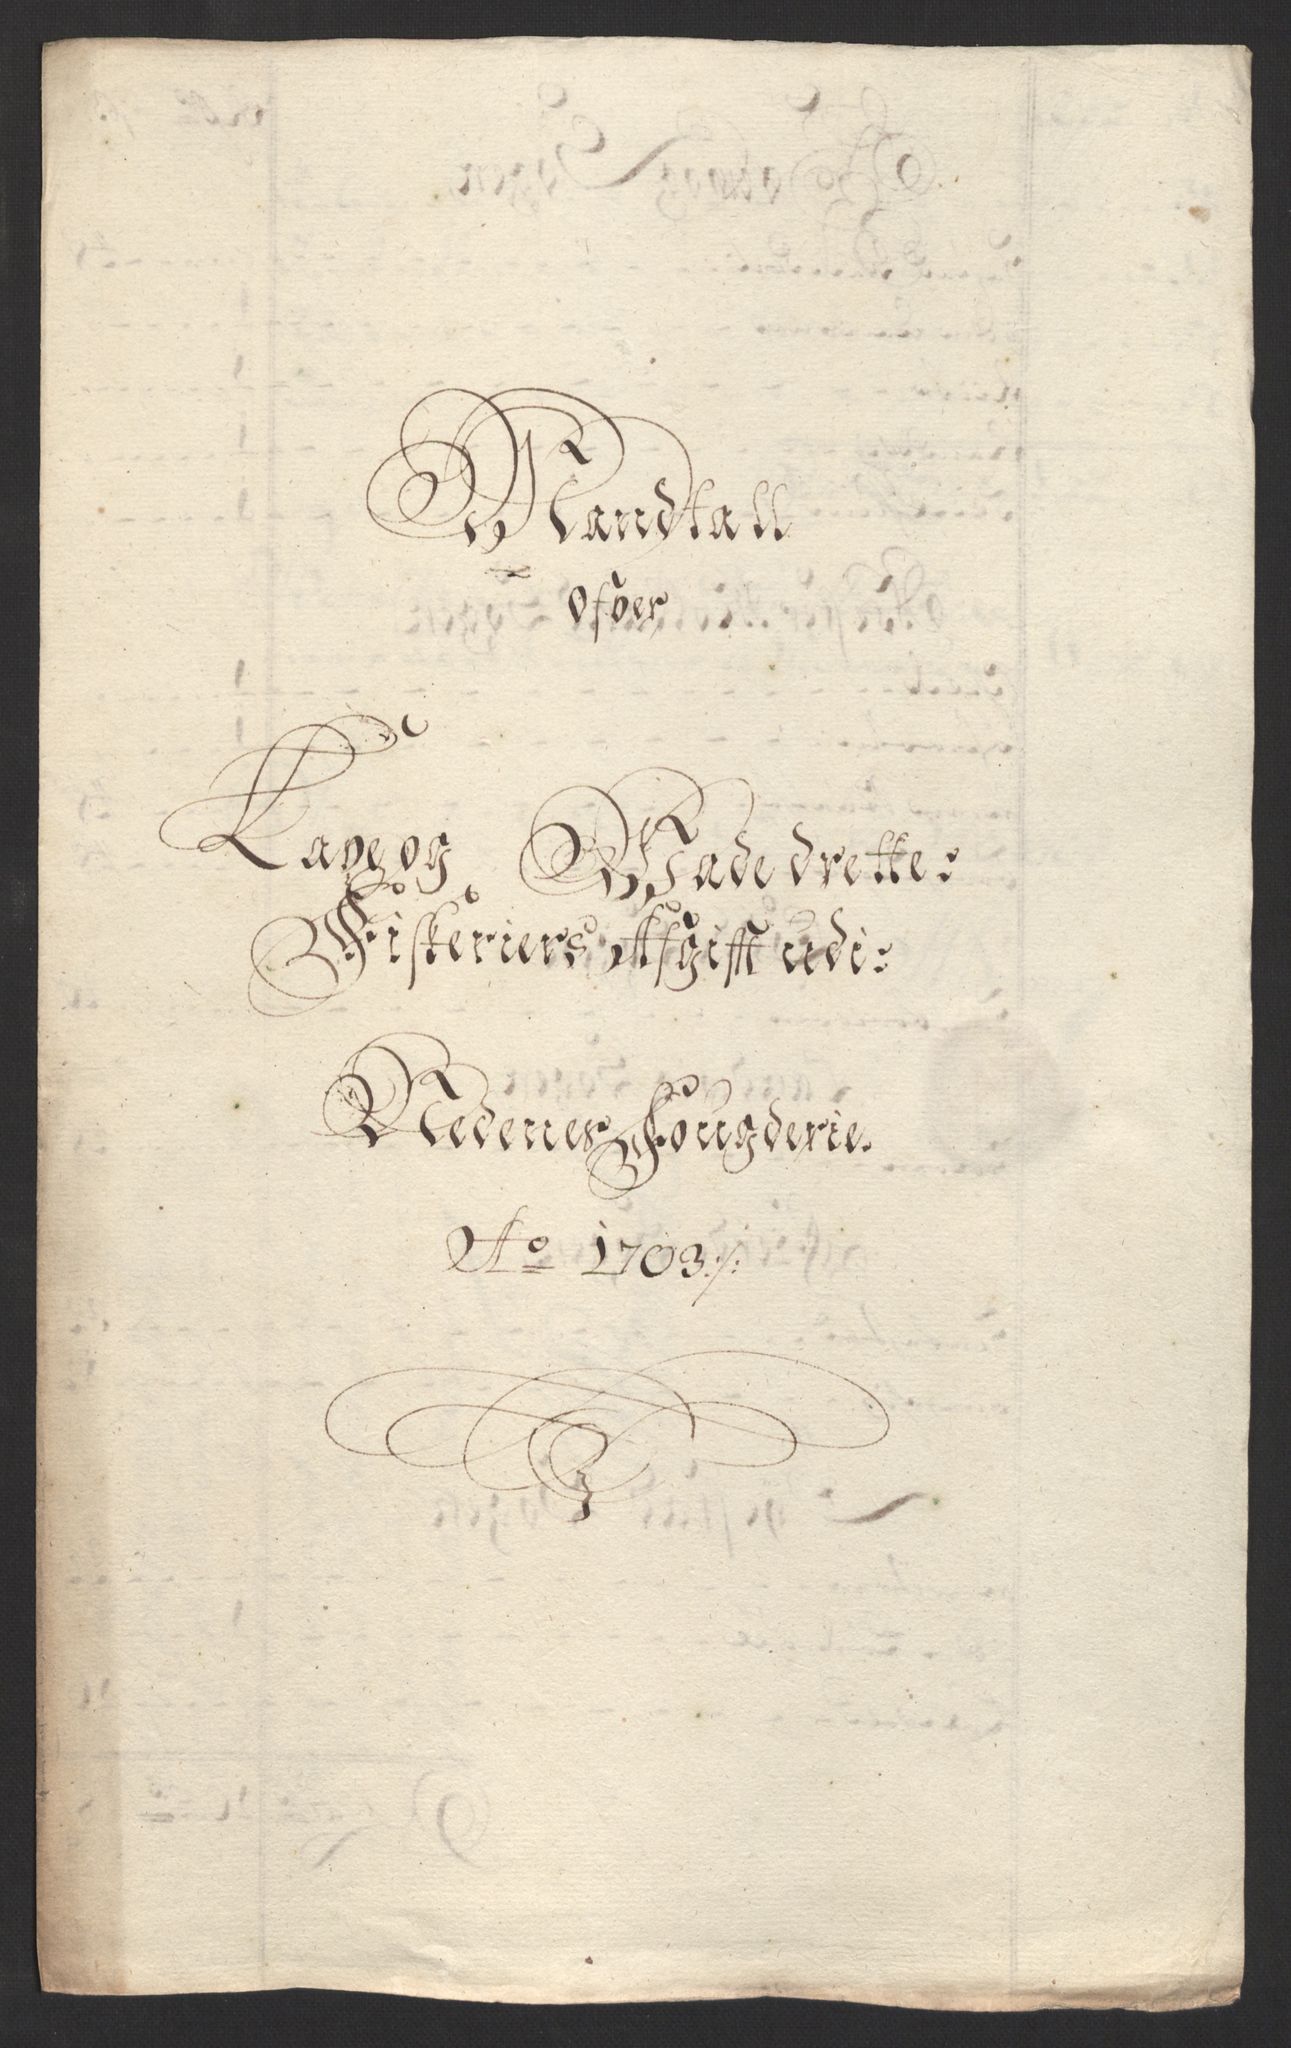 Mandtall
Ofver
Laxe og Wadedrette:
Fiskeriers Afgifft udi:
Nedenes Fougderie.
Ao 1703 ./.